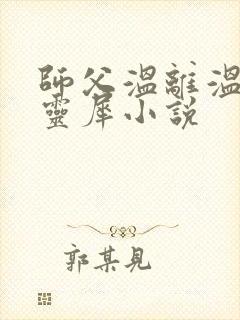 師父溫離溫
靈犀小說
郭某見